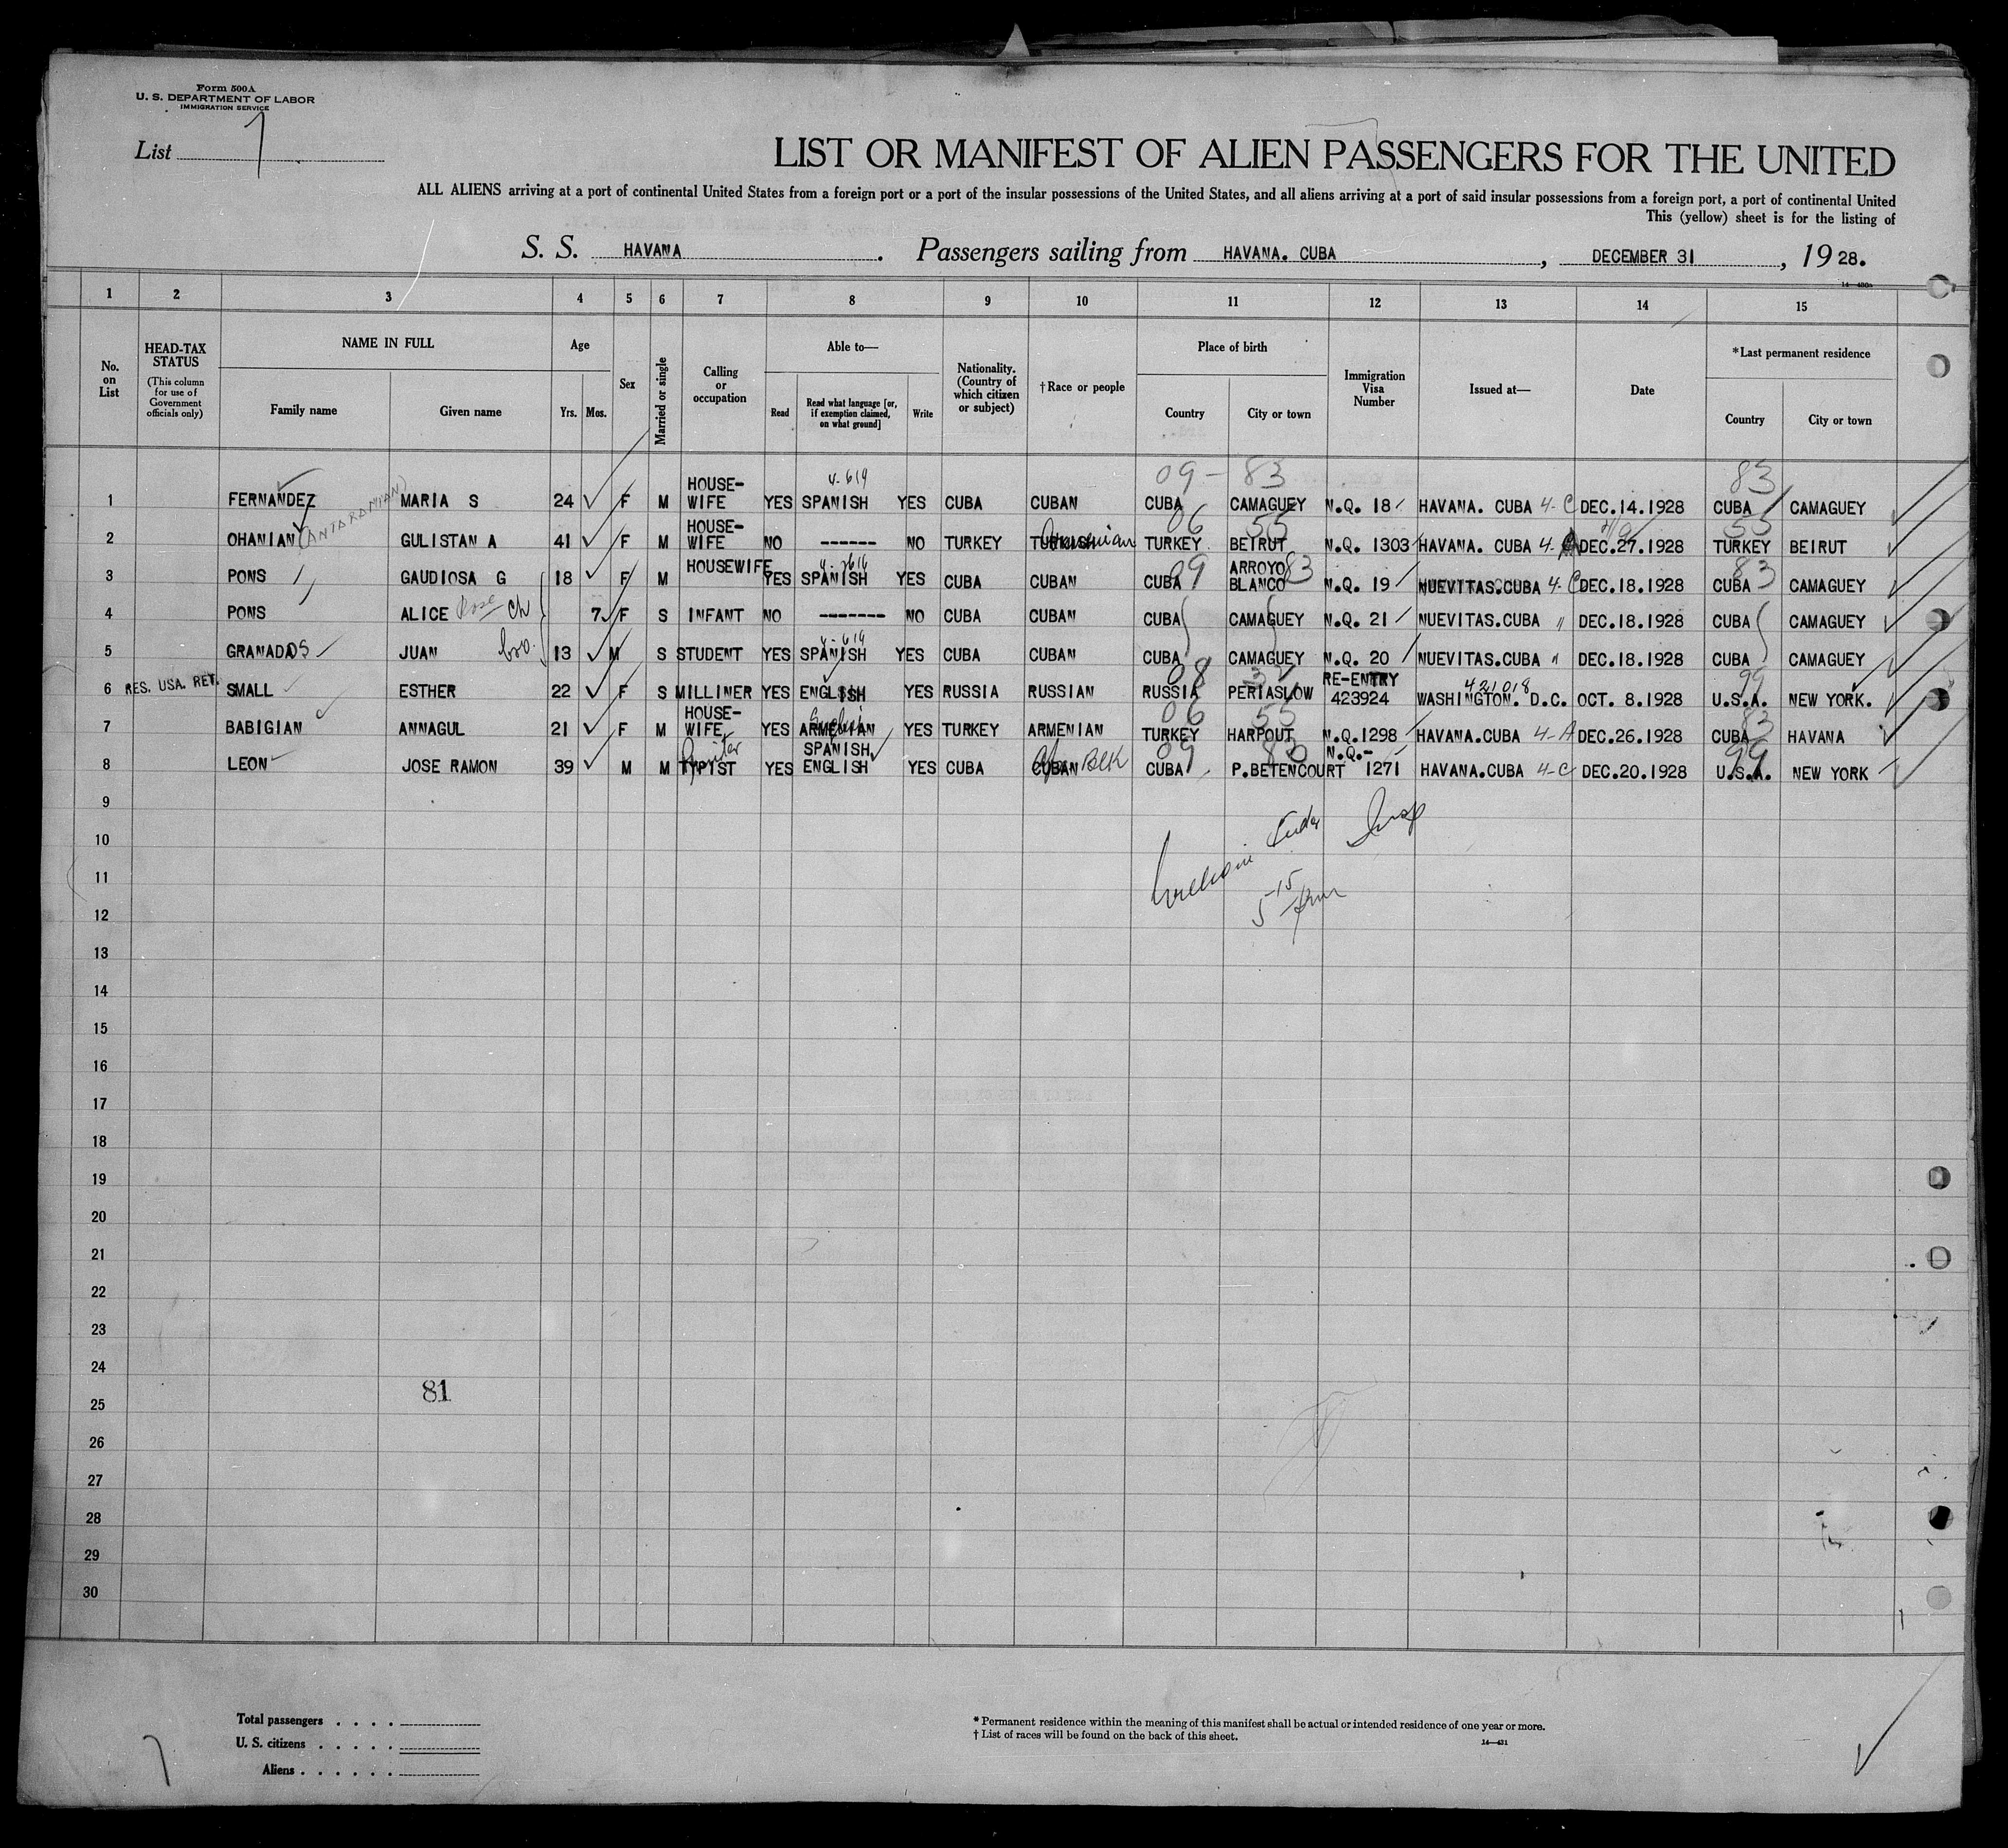 Form 500A
U. S. DEPARTMENT OF LABOR
IMMIGRATION SERVICE
List 7
LIST OR MANIFEST OF ALIEN PASSENGERS FOR THE UNITED
ALL ALIENS arriving at a port of continental United States from a foreign port or a port of the insular possessions of the United States, and all aliens arriving at a port of said insular possessions from a foreign port, a port of continental United
This (yellow) sheet is for the listing of
S. S. HAVANA. Passengers sailing from HAVANA. CUBA, DECEMBER 31, 1928.
1 2 3 4 5 6 7 8 9 10 11 12 13 14 15
No. on List
HEAD-TAX STATUS (This column for use of Government officials only)
NAME IN FULL Family name Given name
Age Yrs. Mos.
Sex
Married or single
Calling or occupation
Able to— Read Read what language [or, if exemption claimed, on what ground] Write
Nationality. (Country of which citizen or subject)
†Race or people
Place of birth Country City or town
Immigration Visa Number
Issued at—
Date
*Last permanent residence Country City or town
4-619 09- 83 83
1 FERNANDEZ MARIA S 24 F M HOUSE-WIFE YES SPANISH YES CUBA CUBAN CUBA CAMAGUEY N.Q. 18 HAVANA. CUBA 4-C DEC.14.1928 CUBA CAMAGUEY
06 55 55
2 OHANIAN (ANTARAMIAN) GULISTAN A 41 F M HOUSE-WIFE NO ------ NO TURKEY TURKISH Armenian TURKEY BEIRUT N.Q. 1303 HAVANA. CUBA 4-A DEC.27.1928 TURKEY BEIRUT
3 PONS GAUDIOSA G 18 F M HOUSEWIFE YES SPANISH YES CUBA CUBAN CUBA 09 ARROYO BLANCO 83 N.Q. 19 NUEVITAS.CUBA 4-C DEC.18.1928 CUBA 83 CAMAGUEY
4 PONS ALICE Rose Ch 7 F S INFANT NO ------- NO CUBA CUBAN CUBA CAMAGUEY N.Q. 21 NUEVITAS.CUBA " DEC.18.1928 CUBA CAMAGUEY
4-619
5 GRANADOS JUAN bro. 13 M S STUDENT YES SPANISH YES CUBA CUBAN CUBA CAMAGUEY N.Q. 20 NUEVITAS.CUBA " DEC.18.1928 CUBA CAMAGUEY
08 421018 99
6 RES. USA. RET. SMALL ESTHER 22 F S MILLINER YES ENGLISH YES RUSSIA RUSSIAN RUSSIA PERIASLOW RE-ENTRY 423924 WASHINGTON. D.C. OCT. 8.1928 U.S.A. NEW YORK.
06 55 83
7 BABIGIAN ANNAGUL 21 F M HOUSE-WIFE YES ARMENIAN English YES TURKEY ARMENIAN TURKEY HARPOUT N.Q.1298 HAVANA.CUBA 4-A DEC.26.1928 CUBA HAVANA
09 83 99
8 LEON JOSE RAMON 39 M M TYPIST YES SPANISH ENGLISH YES CUBA CUBAN Blk CUBA P.BETENCOURT N.Q.-1271 HAVANA.CUBA 4-C DEC.20.1928 U.S.A. NEW YORK
9
10
William Insp
11
5-15
12
13
14
15
16
17
18
19
20
21
22
23
24
81
25
26
27
28
29
30
Total passengers . . . .
U. S. citizens . . . . .
Aliens . . . . . .
7
* Permanent residence within the meaning of this manifest shall be actual or intended residence of one year or more.
† List of races will be found on the back of this sheet.
14—431